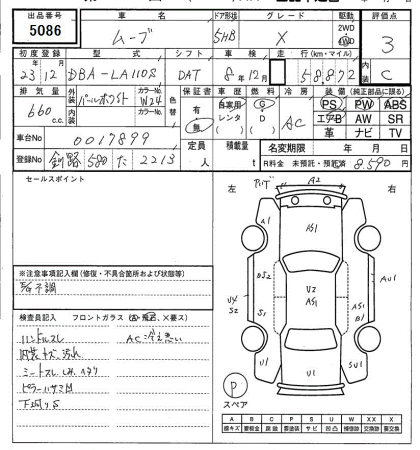 出品番号 車名 ドア形状 グレード 駆動 評価点
5086 ムーブ 5HB X 2WD 4WD 3
初度登録 型式 シフト 車検 走行(km・マイル) 内装
23年12月 DBA-LA110S DAT 8年12月 58872 C
排気量 外装 カラーNo. 色替 保証書 車歴 燃料 冷房 装備(純正部品に限る)
660 c.c. パールホワイト W24 有 無 自家用 レンタ G D AC PS PW ABS
内装 カラーNo. エアB AW SR
革 ナビ TV
車台No 0017899 定員 人 積載量 t 名変期限 年 月 日
登録No 釧路 580 た 2213 R料金 未預託・預託済 8,590
セールスポイント
左 右
A2
A1 AS1
DS2 U2 AS1 AU1
S2 S1 AS1 B1
U1 UU1 SU1
※注意事項記入欄(修復・不具合箇所および状態等)
検査員記入 フロントガラス(A・飛石、X要ス)
ハンドルスレ AC冷え悪い
内装キズ、汚れ
シートスレ、しみ、ヘタリ
ピラーハサミ凹
下廻りS
P
スペア
A B C P S U W X XX
線キズ 要板金 腐蝕 要塗装 サビ 凹凸 補修跡 要交換 交換跡